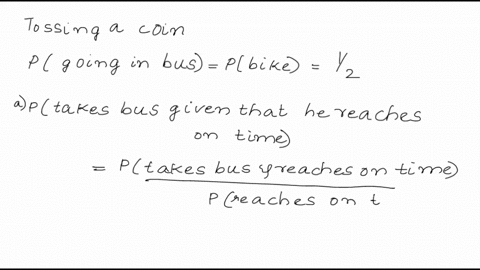 Tossing a coin
P( going in bus) = P(bike) = 1/2
a) P(takes bus given that he reaches
on time)
= P(takes bus & reaches on time)
P(reaches on t